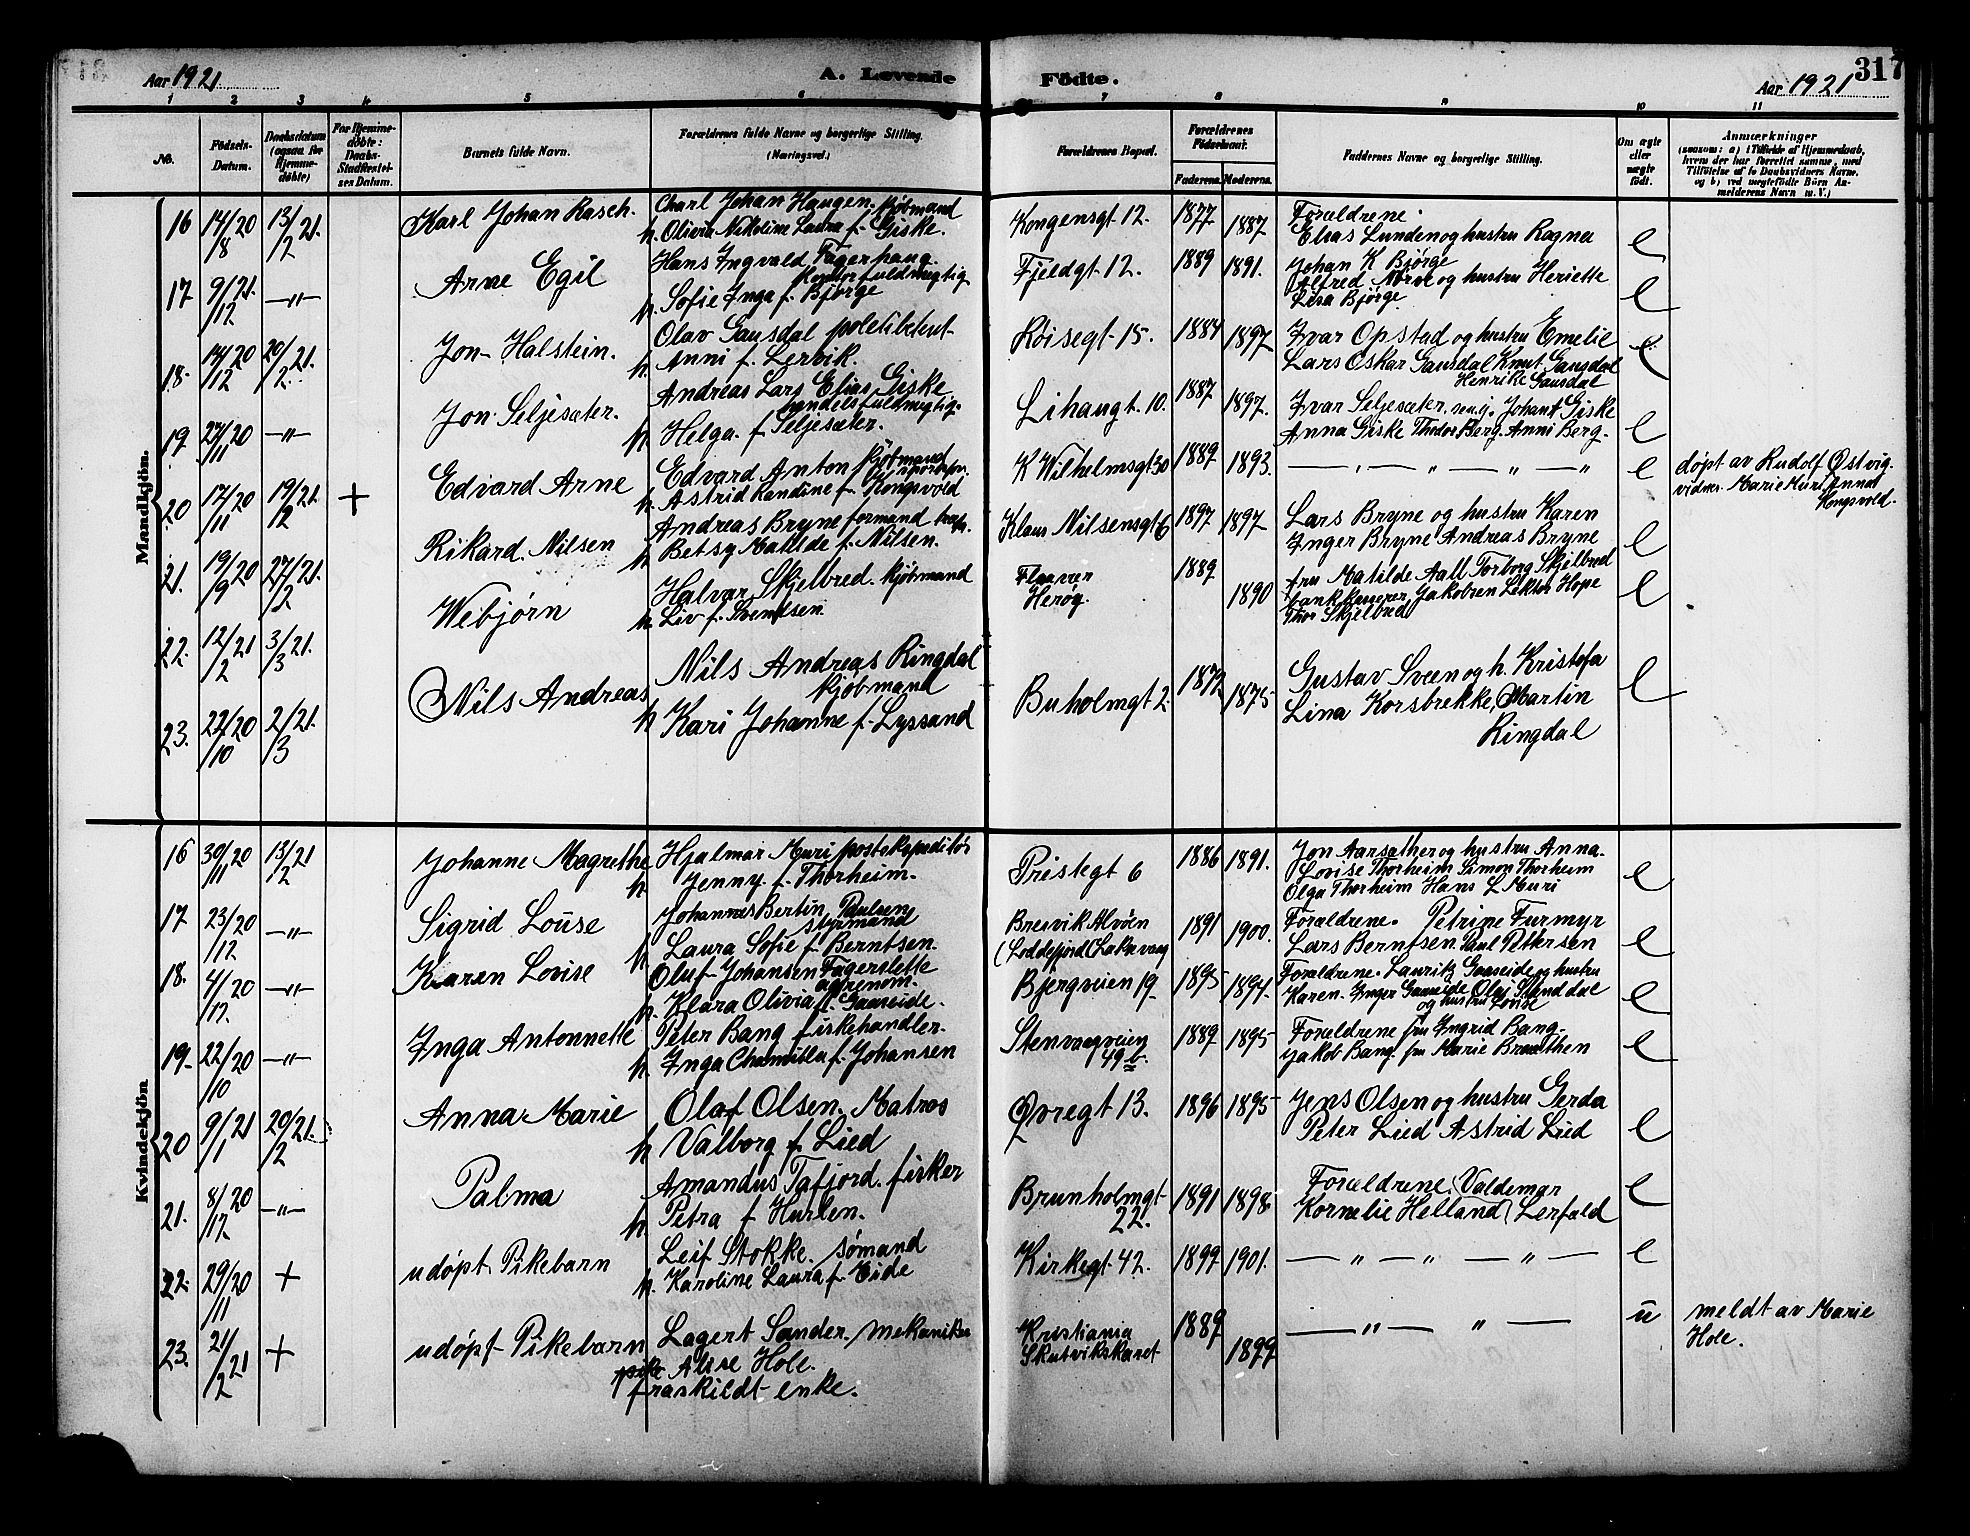 Aar 1921
A. Levende Födte.
Aar 1921
317
1 2 3 4 5 6 7 8 9 10 11
No.
Födsels-
Datum.
Daabsdatum
(ogsaa for
Hjemme-
döbte)
For Hjemme-
döbte:
Daabs-
Stadfæstel-
ses Datum.
Barnets fulde Navn.
Forældrenes fulde Navne og borgerlige Stilling.
(Næringsvei.)
Forældrenes Bopæl.
Forældrenes
Födselsaar.
Faderens. Moderens.
Faddernes Navne og borgerlige Stilling.
Om ægte
eller
uægte
födt.
Anmærkninger
(saasom: a) i Tilfælde af Hjemmedaab,
hvem der har forrettet samme, med
Tilföielse af to Daabsvidners Navne,
og b) ved uegtefödte Börn An-
melderens Navn m. V.)
Mandkjön.
16 14/8 20 13/2 21.
Karl Johan Rasch.
Charl Johan Haugen. kjöbmand
h. Olivia Nikoline Laura f. Giske.
Kongensgt 12. 1877 1887
Forældrene.
Elias Lunden og hustru Ragna
e
17 9/12 21. —"—
Arne Egil
Hans Ingvald Fagerhaug.
Kontorfuldmegtig
h. Sofie Inga f. Bjørge
Fjeldgt 12. 1889 1891.
Johan K Bjørge
Alfred Norve og hustru Heriette
Lisa Bjørge
e
18. 14/12 20 20/2 21.
Jon Halstein.
Olav Gausdal politibetent
h. Anni f. Lervik.
Röisegt 15. 1884 1897
Ivar Opstad og hustru Emelie
Lars Oskar Gausdal Knut Gausdal
Henrike Gausdal
e
19. 27/11 20 —"—
Jon Seljesæter.
Andreas Lars Elias Giske
handelsfuldmegtig.
h. Helga f. Seljesæter.
Lihaugt. 10. 1887 1897.
Ivar Seljesæter, sen.g. Johan Giske
Anna Giske Thodor Berg. Anni Berg.
e
20. 17/11 20 19/12 21. +
Edvard Arne
Edvard Anton kjöbmand
h. Astrid Randine f. Kongsvold
K Wilhelmsgt 30 1889 1893.
— " — " — " — "
e
døpt av Rudolf Østvig.
vidner. Marie Muri Anna
Kongsvold.
21. 19/9 20 27/2 21.
Rikard Nilsen
Andreas Bryne formand
h. Betsy Matilde f. Nilsen.
Klaus Nilsensgt 6 1897 1897
Lars Bryne og hustru Karen
Inger Bryne Andreas Bryne
e
22. 12/2 21 3/3 21.
Webjørn
Halvar Skjelbred. kjöbmand
h. Liv f. Svendsen.
Flaavær
Herøy. 1889 1890
Fru Matilde Aall Torborg Skjelbred
bankkasserer Jakobsen Lektor Hope
Thor Skjelbred
e
23. 22/10 20 2/3 21.
Nils Andreas
Nils Andreas Ringdal
kjöbmand
h Kari Johanne f. Lyssand
Buholmgt 2. 1873 1875
Gustav Sveen og h. Kristofa
Lina Korsbrekke, Martin
Ringdal
e
Kvindekjön
16 30/11 20 13/2 21
Johanne Magrethe
Hjalmar Muri postekspeditör
h Jenny f. Thorheim.
Pristegt 6 1886 1891.
Jon Aarsæther og hustru Anna
Lovise Thorheim Simon Thorheim
Olga Thorheim Hans L Muri
e
17 23/12 20 —"—
Sigrid Louise
Johannes Bertin Paulsen
styrmand
h Laura Sofie f. Berntsen.
Bresvik Alvöen
(Loddefjord) Laksevaag 1891 1900.
Forældrene. Petrine Furmyr
Lars Berntsen Paul Pettersen
e
18. 4/12 20 —"—
Karen Lovise
Oluf Johansen Fagerslette
agrenom.
h. Klara Olivia f. Gaaseide.
Bjergveien 19 1895 1894.
Forældrene. Lauritz Gaaseide og hustru
Karen. Inger Gaaseide Olai Standdal
og hustru Louise
e
19. 22/10 20 —"—
Inga Antonnette
Peter Bang fiskehandler.
h. Inga Chamilla f. Johansen
Stenvaagveien
49 b. 1889 1895
Forældrene fru Ingrid Bang.
Jakob Bang. fru Marie Braathen
e
20 9/1 21 20/2 21.
Anna Marie
Olaf Olsen. Matros
h Valborg f. Lied
Øvregt 13. 1896 1895
Jens Olsen og hustru Gerda
Peter Lied Astrid Lied
e
21. 8/12 20 —"—
Palma
Amandus Tafjord. fisker
h. Petra f Hurlen.
Brunholmgt
22. 1891 1898.
Forældrene. Valdemar
Kornelie Helland Lerfald
e
22. 29/11 20 +
udøpt Pikebarn
Leif Stokke. sømand
h. Karoline Laura f. Eide
Kirkegt 42. 1899 1901.
— " — " — " —
e
23. 21/2 21 +
udøpt Pikebarn
Lagert Sander. mekaniker
pike Alise Hole.
fraskildt enke.
Kristiania
Skutvikskaret 1889 1899
— " — " —
u
meldt av Marie
Hole.